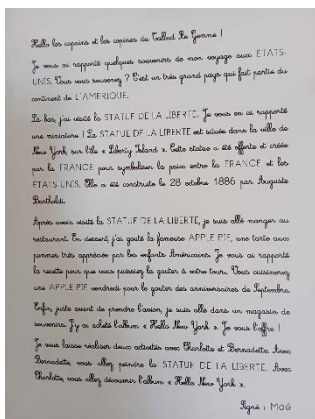 Hello les copains et les copines de Tallud Ste Gemme !
Je vous ai rapporté quelques souvenirs de mon voyage aux ETATS-
UNIS. Vous vous souvenez ? C'est un très grand pays qui fait partie du
continent de L'AMERIQUE.
Là bas, j'ai visité la STATUE DE LA LIBERTE. Je vous en ai rapporté
une miniature ! La STATUE DE LA LIBERTE est située dans la ville de
New York sur l'île « Liberty Island ». Cette statue a été offerte et créée
par la FRANCE pour symboliser la paix entre la FRANCE et les
ETATS-UNIS. Elle a été construite le 28 octobre 1886 par Auguste
Bartholdi.
Après avoir visité la STATUE DE LA LIBERTE, je suis allé manger au
restaurant. En dessert, j'ai goûté la fameuse APPLE PIE, une tarte aux
pommes très appréciée par les enfants Américains. Je vous ai rapporté
la recette pour que vous puissiez la goûter à votre tour. Vous cuisinerez
une APPLE PIE vendredi pour le goûter des anniversaires de Septembre.
Enfin, juste avant de prendre l'avion, je suis allé dans un magasin de
souvenirs. J'y ai acheté l'album « Hello New York ». Je vous l'offre !
Je vous laisse réaliser deux activités avec Charlotte et Bernadette. Avec
Bernadette, vous allez peindre la STATUE DE LA LIBERTE. Avec
Charlotte, vous allez découvrir l'album « Hello New York ».
Signé : Maé